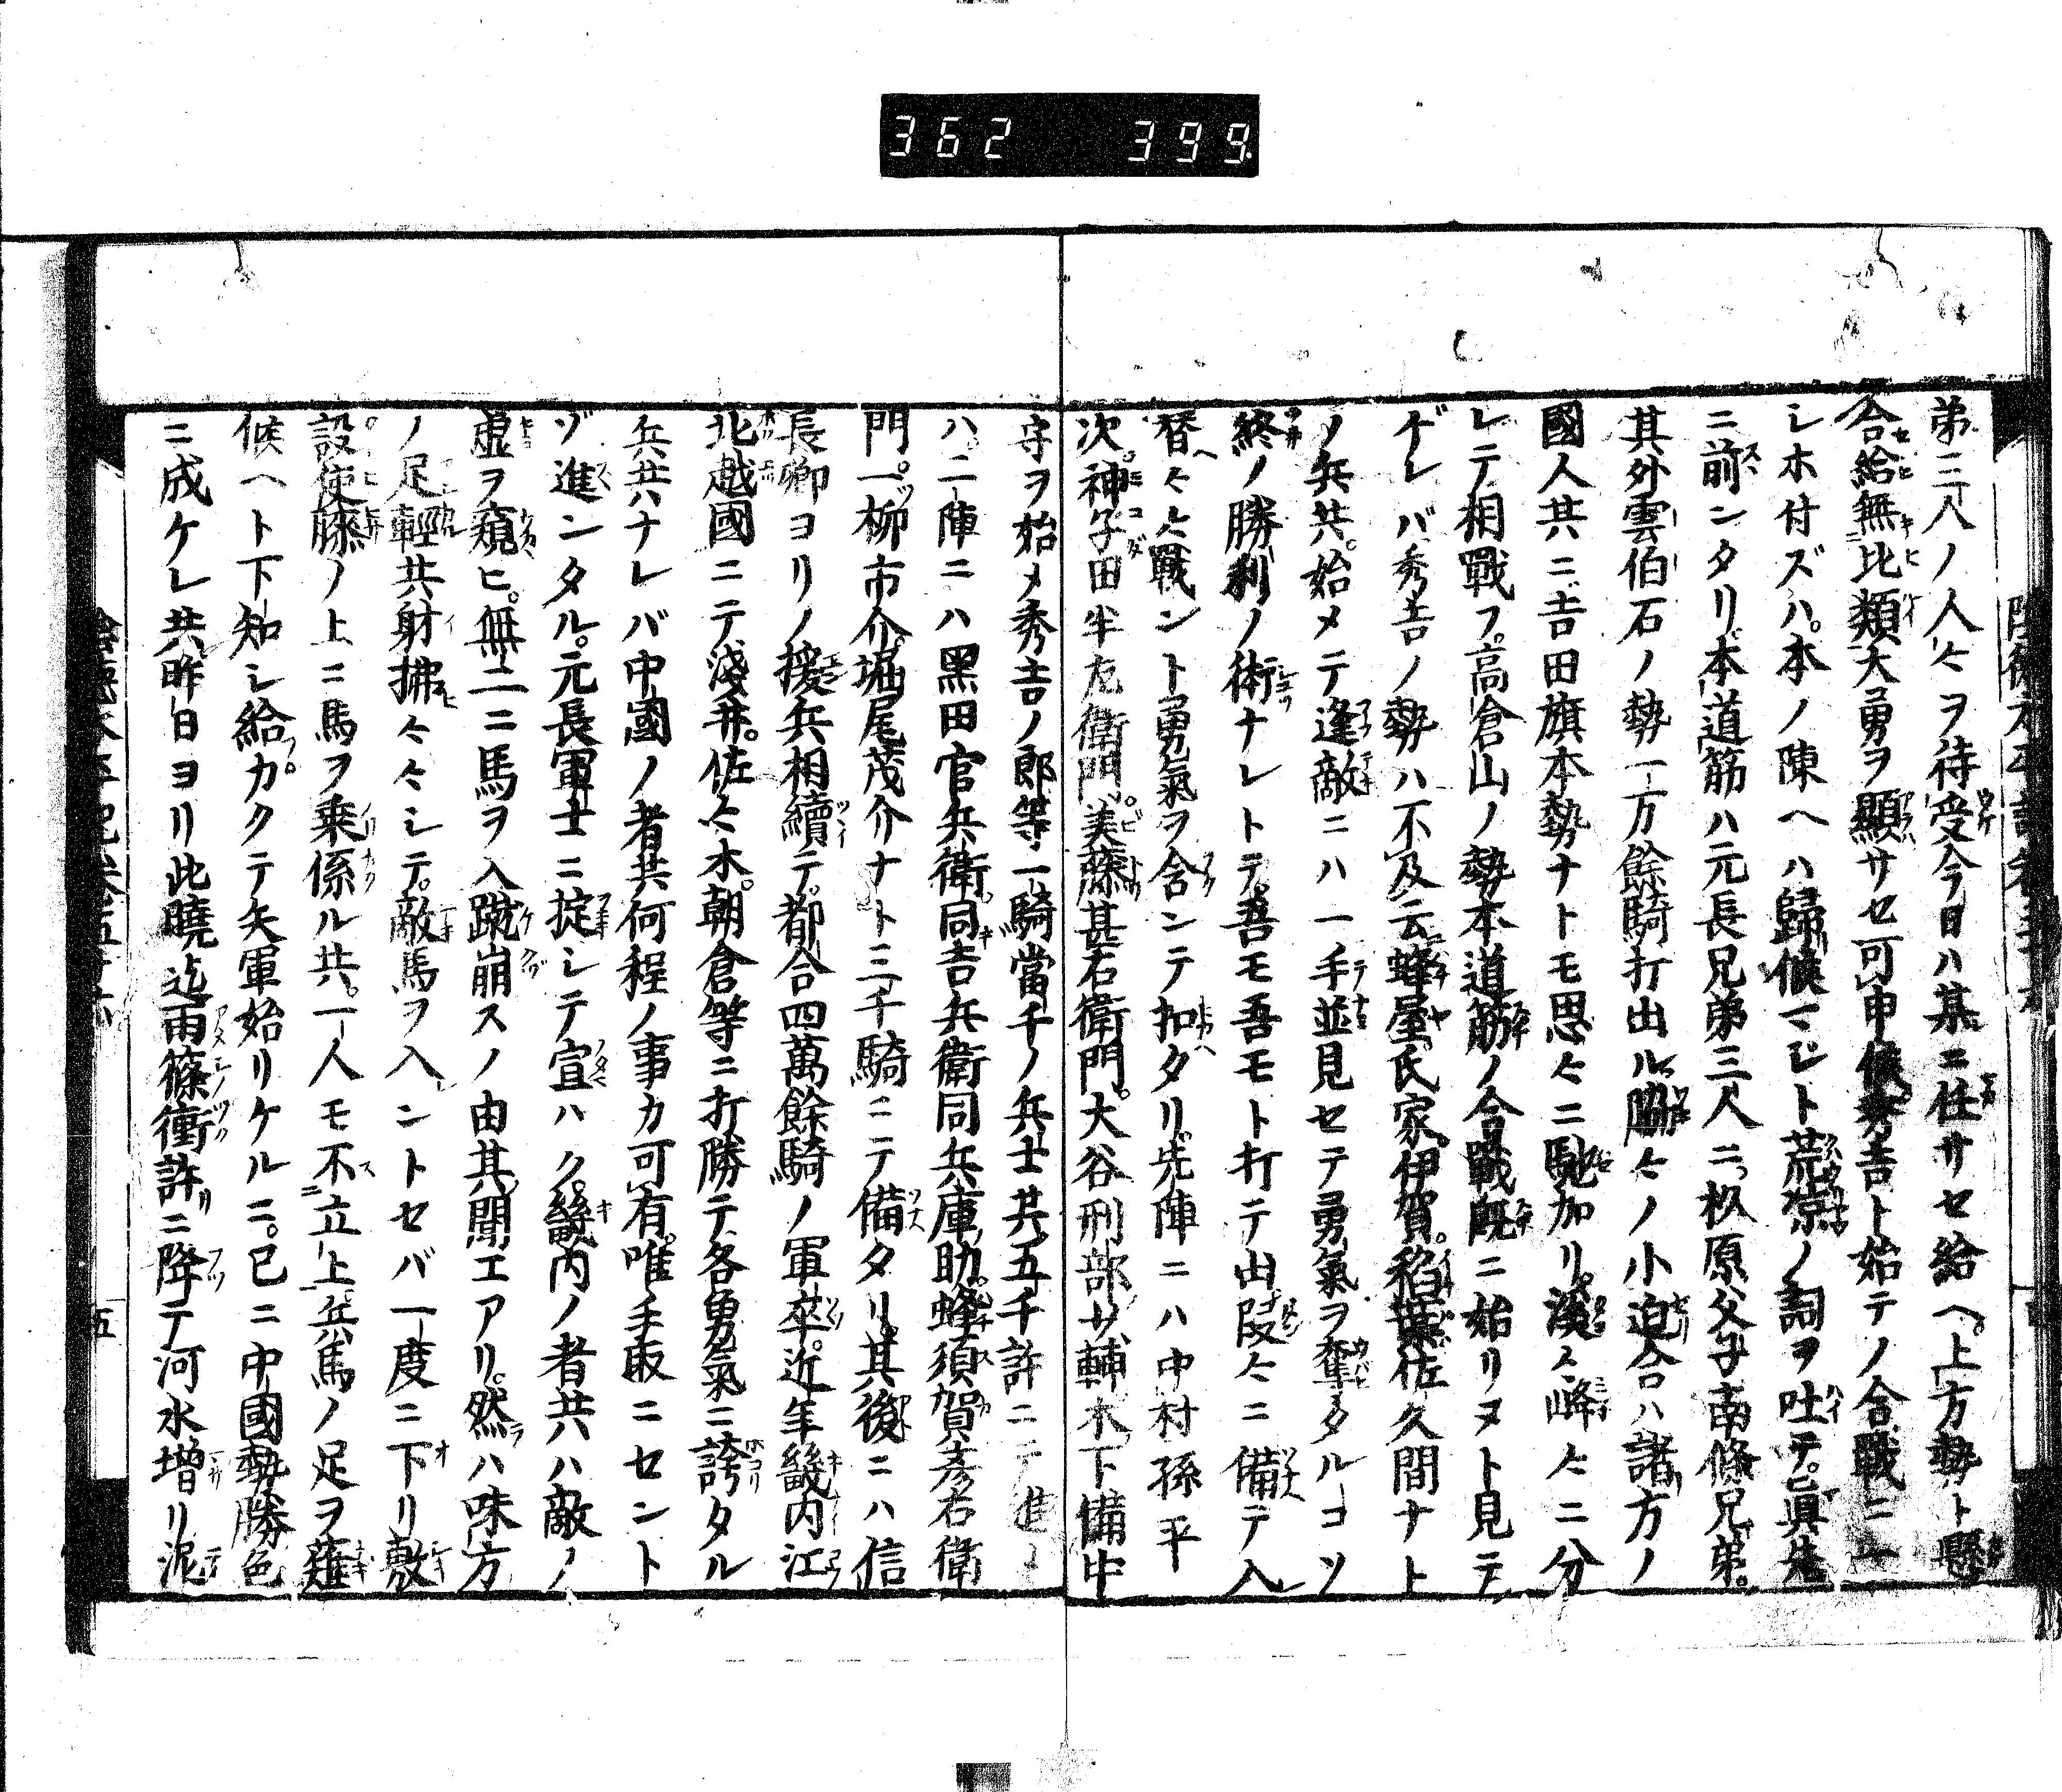 362 399
弟三人ノ人々ヲ待受今日ハ某ニ任サセ給ヘ上方勢ト懸
合給無比類大勇ヲ顯サセ可申候秀吉ト始テノ合戰ニ一
シホ付ズハ本ノ陳ヘハ歸候マジト荒凉ノ詞ヲ吐テ眞先
ニ前ンタリ本道筋ハ元長兄弟三人ニ杦原父子南條兄弟
其外雲伯石ノ勢一万餘騎打出ル脇々ノ小迫合ハ諸方ノ
國人共ニ吉田旗本勢ナトモ思々ニ馳加リ溪々峰々ニ分
レテ相戰フ高倉山ノ勢本道筋ノ合戰既ニ始リヌト見テ
ゲレバ秀吉ノ勢ハ不及云蜂屋氏家伊賀稻葉佐久間ナト
ノ兵共始メテ逢敵ニハ一手並見セテ勇氣ヲ奪タルコソ
終ノ勝利ノ術ナレトテ吾モ吾モト打テ出段々ニ備テ入
替々々戰ント勇氣ヲ含ンテ扣タリ先陣ニハ中村孫平
次神子田半左衛門美藤甚右衛門大谷刑部少輔木下備中
守ヲ始メ秀吉ノ郎等一騎當千ノ兵士共五千許ニテ進メ
ハ二陣ニハ黑田官兵衛同吉兵衛同兵庫助蜂須賀彦右衛
門一柳市介堀尾茂介ナト三千騎ニテ備タリ其後ニハ信
長卿ヨリノ援兵相續テ都合四萬餘騎ノ軍卒近年畿内江
北越國ニテ淺井佐々木朝倉等ニ打勝テ各勇氣ニ誇タル
兵共ナレバ中國ノ者共何程ノ事カ可有唯手取ニセント
ゾ進ンタル元長軍士ニ掟シテ宣ハク畿内ノ者共ハ敵ノ
虚ヲ窺ヒ無二ニ馬ヲ入蹴崩スノ由其聞エアリ然ハ味方
ノ足輕共射拂々々シテ敵馬ヲ入ントセバ一度ニ下リ敷
設使膝ノ上ニ馬ヲ乗係ル共一人モ不立上兵馬ノ足ヲ薙
候ヘト下知シ給カクテ矢軍始リケルニ已ニ中國勢勝色
ニ成ケレ共昨日ヨリ此曉迄雨篠衝許ニ降テ河水增リ泥
五